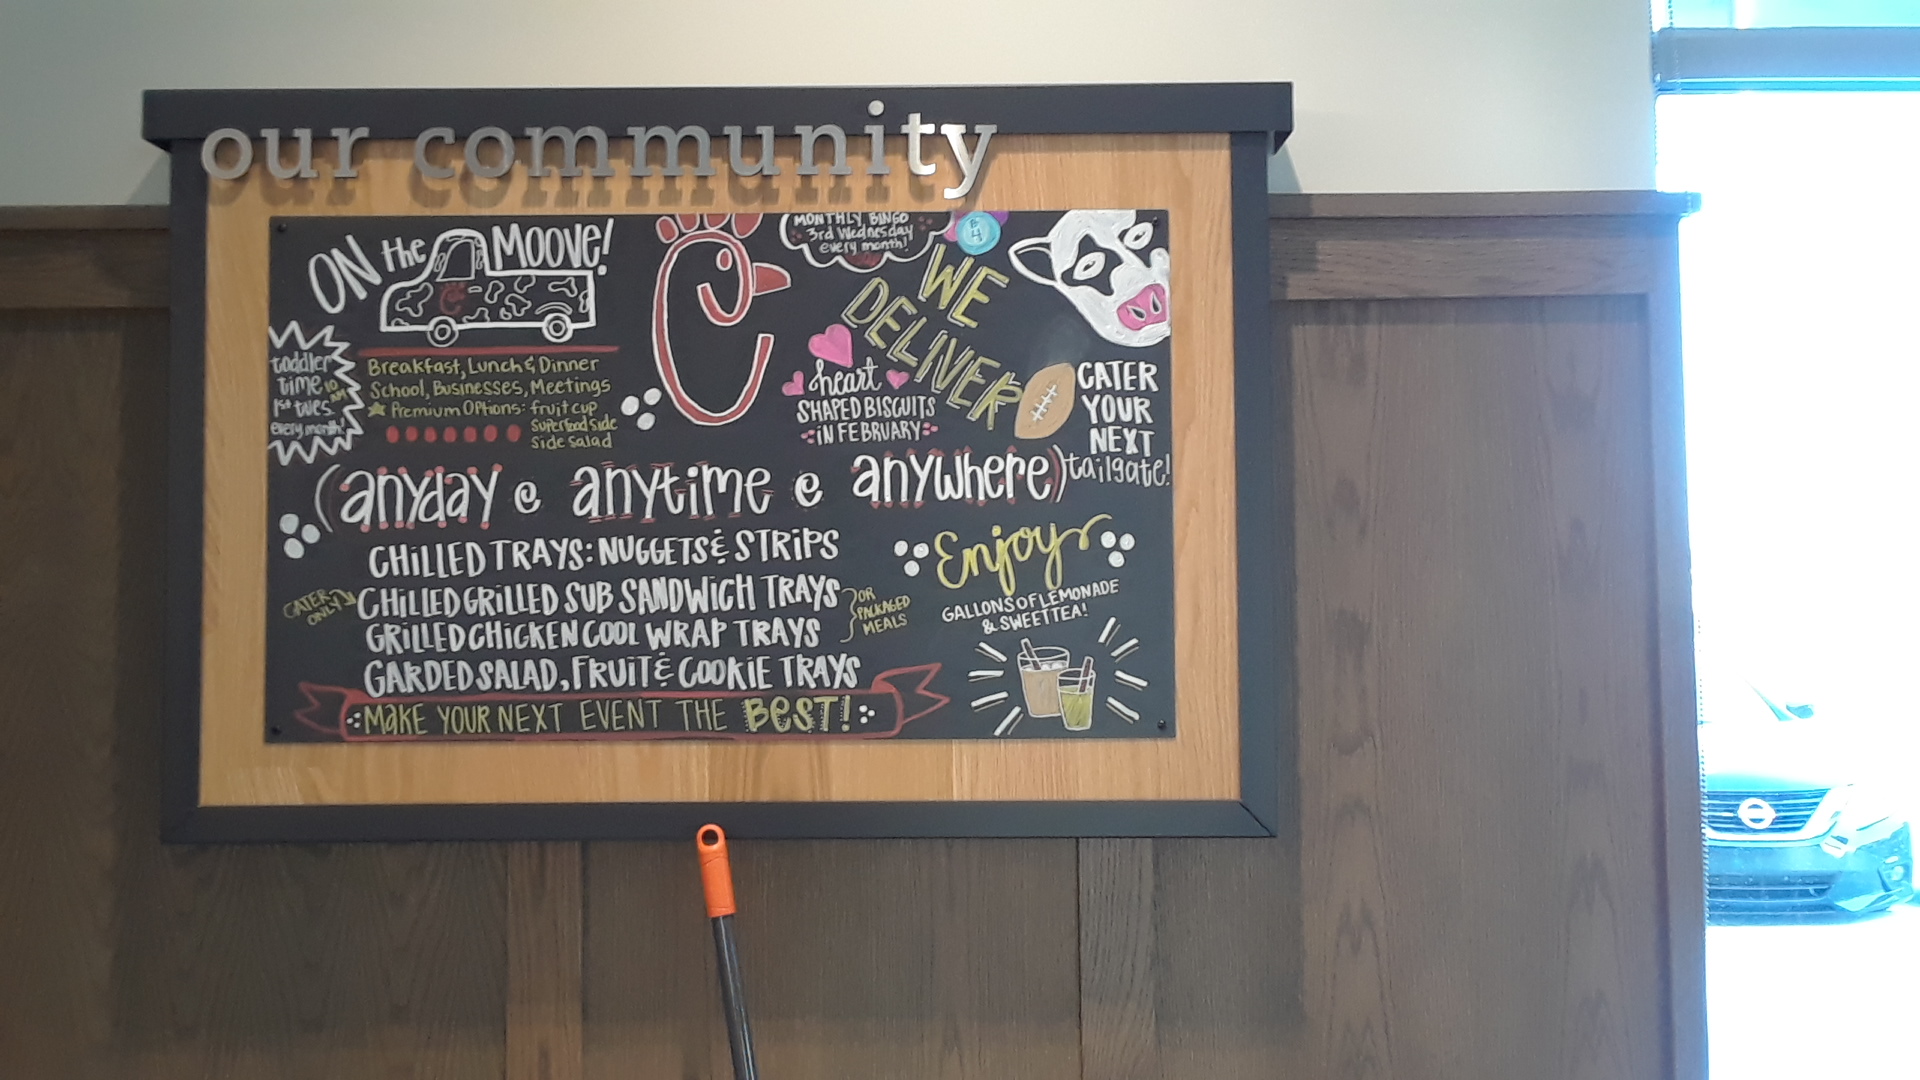 our community
ON the MOOVE!
toddler
time 10 AM
1st tues.
every month!
Breakfast, Lunch & Dinner
School, Businesses, Meetings
Premium Options: fruit cup
Superfood Side
Side Salad
MONTHLY BINGO
3rd Wednesday
every month!
WE
DELIVER
heart
SHAPED BISCUITS
IN FEBRUARY
CATER
YOUR
NEXT
tailgate!
(anyday e anytime e anywhere)
CHILLED TRAYS: NUGGETS & STRIPS
CHILLED GRILLED SUB SANDWICH TRAYS
GRILLED CHICKEN COOL WRAP TRAYS
GARDED SALAD, FRUIT & COOKIE TRAYS
CATER
ONLY
OR
PACKAGED
MEALS
MAKE YOUR NEXT EVENT THE BEST!
Enjoy
GALLONS OF LEMONADE
& SWEET TEA!